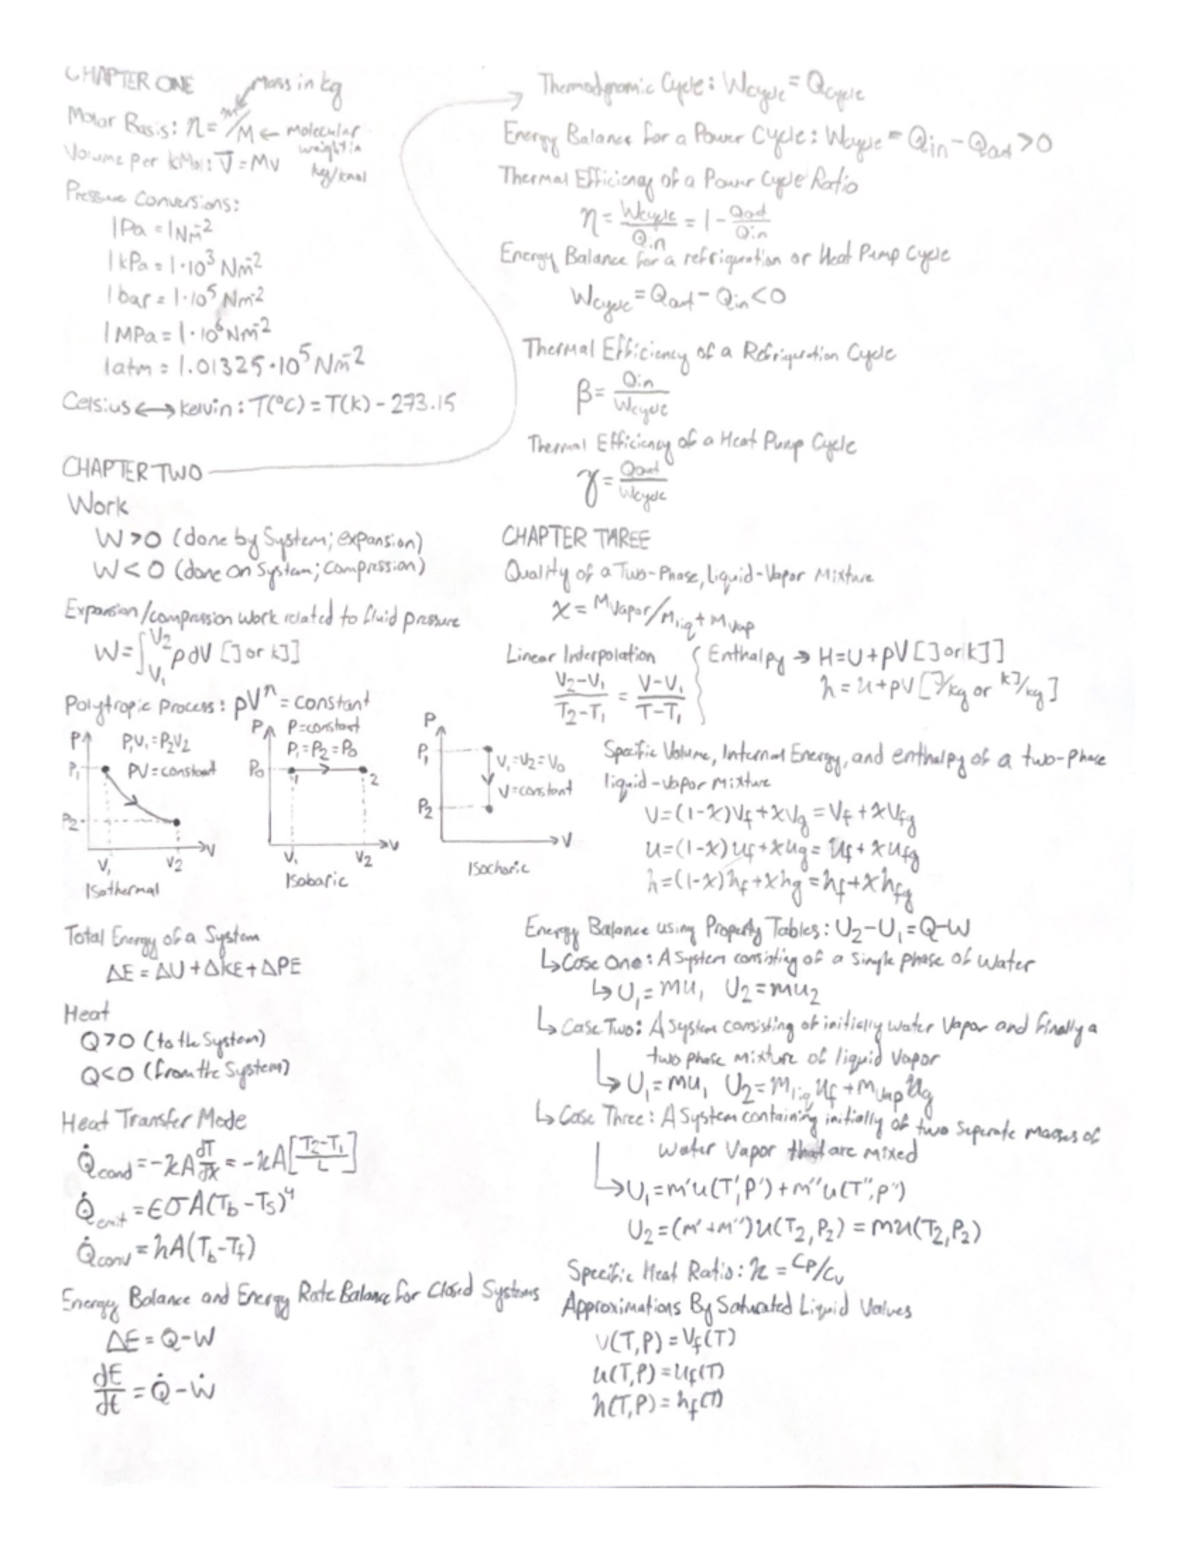 CHAPTER ONE
Mass in kg
Molar Basis: n = m/M ← Molecular weight in kg/kmol
Volume per kMol: V̄ = Mv
Pressure Conversions:
1 Pa = 1 Nm⁻²
1 kPa = 1·10³ Nm⁻²
1 bar = 1·10⁵ Nm⁻²
1 MPa = 1·10⁶ Nm⁻²
1 atm = 1.01325·10⁵ Nm⁻²
Celsius ↔ Kelvin: T(°C) = T(K) - 273.15
CHAPTER TWO
Work
W > 0 (done by System; expansion)
W < 0 (done on System; Compression)
Expansion/compression work related to fluid pressure
W = ∫_V₁^V₂ pdV [J or kJ]
Polytropic Process: pVⁿ = constant
P P₁V₁ = P₂V₂
P₁ PV = constant
P₂
V₁ V₂ V
Isothermal
P P = constant
P₁ = P₂ = P₀
P₀ 1 2
V₁ V₂ V
Isobaric
P
P₁ V₁ = V₂ = V₀
V = constant
P₂
V
Isochoric
Total Energy of a System
ΔE = ΔU + ΔKE + ΔPE
Heat
Q > 0 (to the System)
Q < 0 (from the System)
Heat Transfer Mode
Q̇cond = -κA dT/dx = -κA[(T₂-T₁)/L]
Q̇emit = εσA(Tb - Ts)⁴
Q̇conv = hA(Tb - Tf)
Energy Balance and Energy Rate Balance for Closed Systems
ΔE = Q - W
dE/dt = Q̇ - Ẇ
Thermodynamic Cycle: Wcycle = Qcycle
Energy Balance for a Power Cycle: Wcycle = Qin - Qout > 0
Thermal Efficiency of a Power Cycle Ratio
η = Wcycle/Qin = 1 - Qout/Qin
Energy Balance for a refrigeration or Heat Pump Cycle
Wcycle = Qout - Qin < 0
Thermal Efficiency of a Refrigeration Cycle
β = Qin/Wcycle
Thermal Efficiency of a Heat Pump Cycle
γ = Qout/Wcycle
CHAPTER THREE
Quality of a Two-Phase, Liquid-Vapor Mixture
x = Mvapor/Mliq + Mvap
Linear Interpolation
(V₂-V₁)/(T₂-T₁) = (V-V₁)/(T-T₁)
Enthalpy → H = U + pV [J or kJ]
h = u + pV [J/kg or kJ/kg]
Specific Volume, Internal Energy, and enthalpy of a two-phase
liquid-vapor mixture
V = (1-x)Vf + xVg = Vf + xVfg
u = (1-x)uf + xug = uf + xufg
h = (1-x)hf + xhg = hf + xhfg
Energy Balance using Property Tables: U₂ - U₁ = Q - W
↳ Case One: A System consisting of a single phase of water
↳ U₁ = mu₁ U₂ = mu₂
↳ Case Two: A System consisting of initially water Vapor and finally a
two phase mixture of liquid Vapor
↳ U₁ = mu₁ U₂ = Mliq uf + Mvap ug
↳ Case Three: A System containing initially of two seperate masses of
water Vapor that are mixed
↳ U₁ = m'u(T',P') + m''u(T'',p'')
U₂ = (m'+m'')u(T₂,P₂) = mu(T₂,P₂)
Specific Heat Ratio: κ = Cp/Cv
Approximations By Saturated Liquid Values
V(T,P) = Vf(T)
u(T,P) = uf(T)
h(T,P) = hf(T)